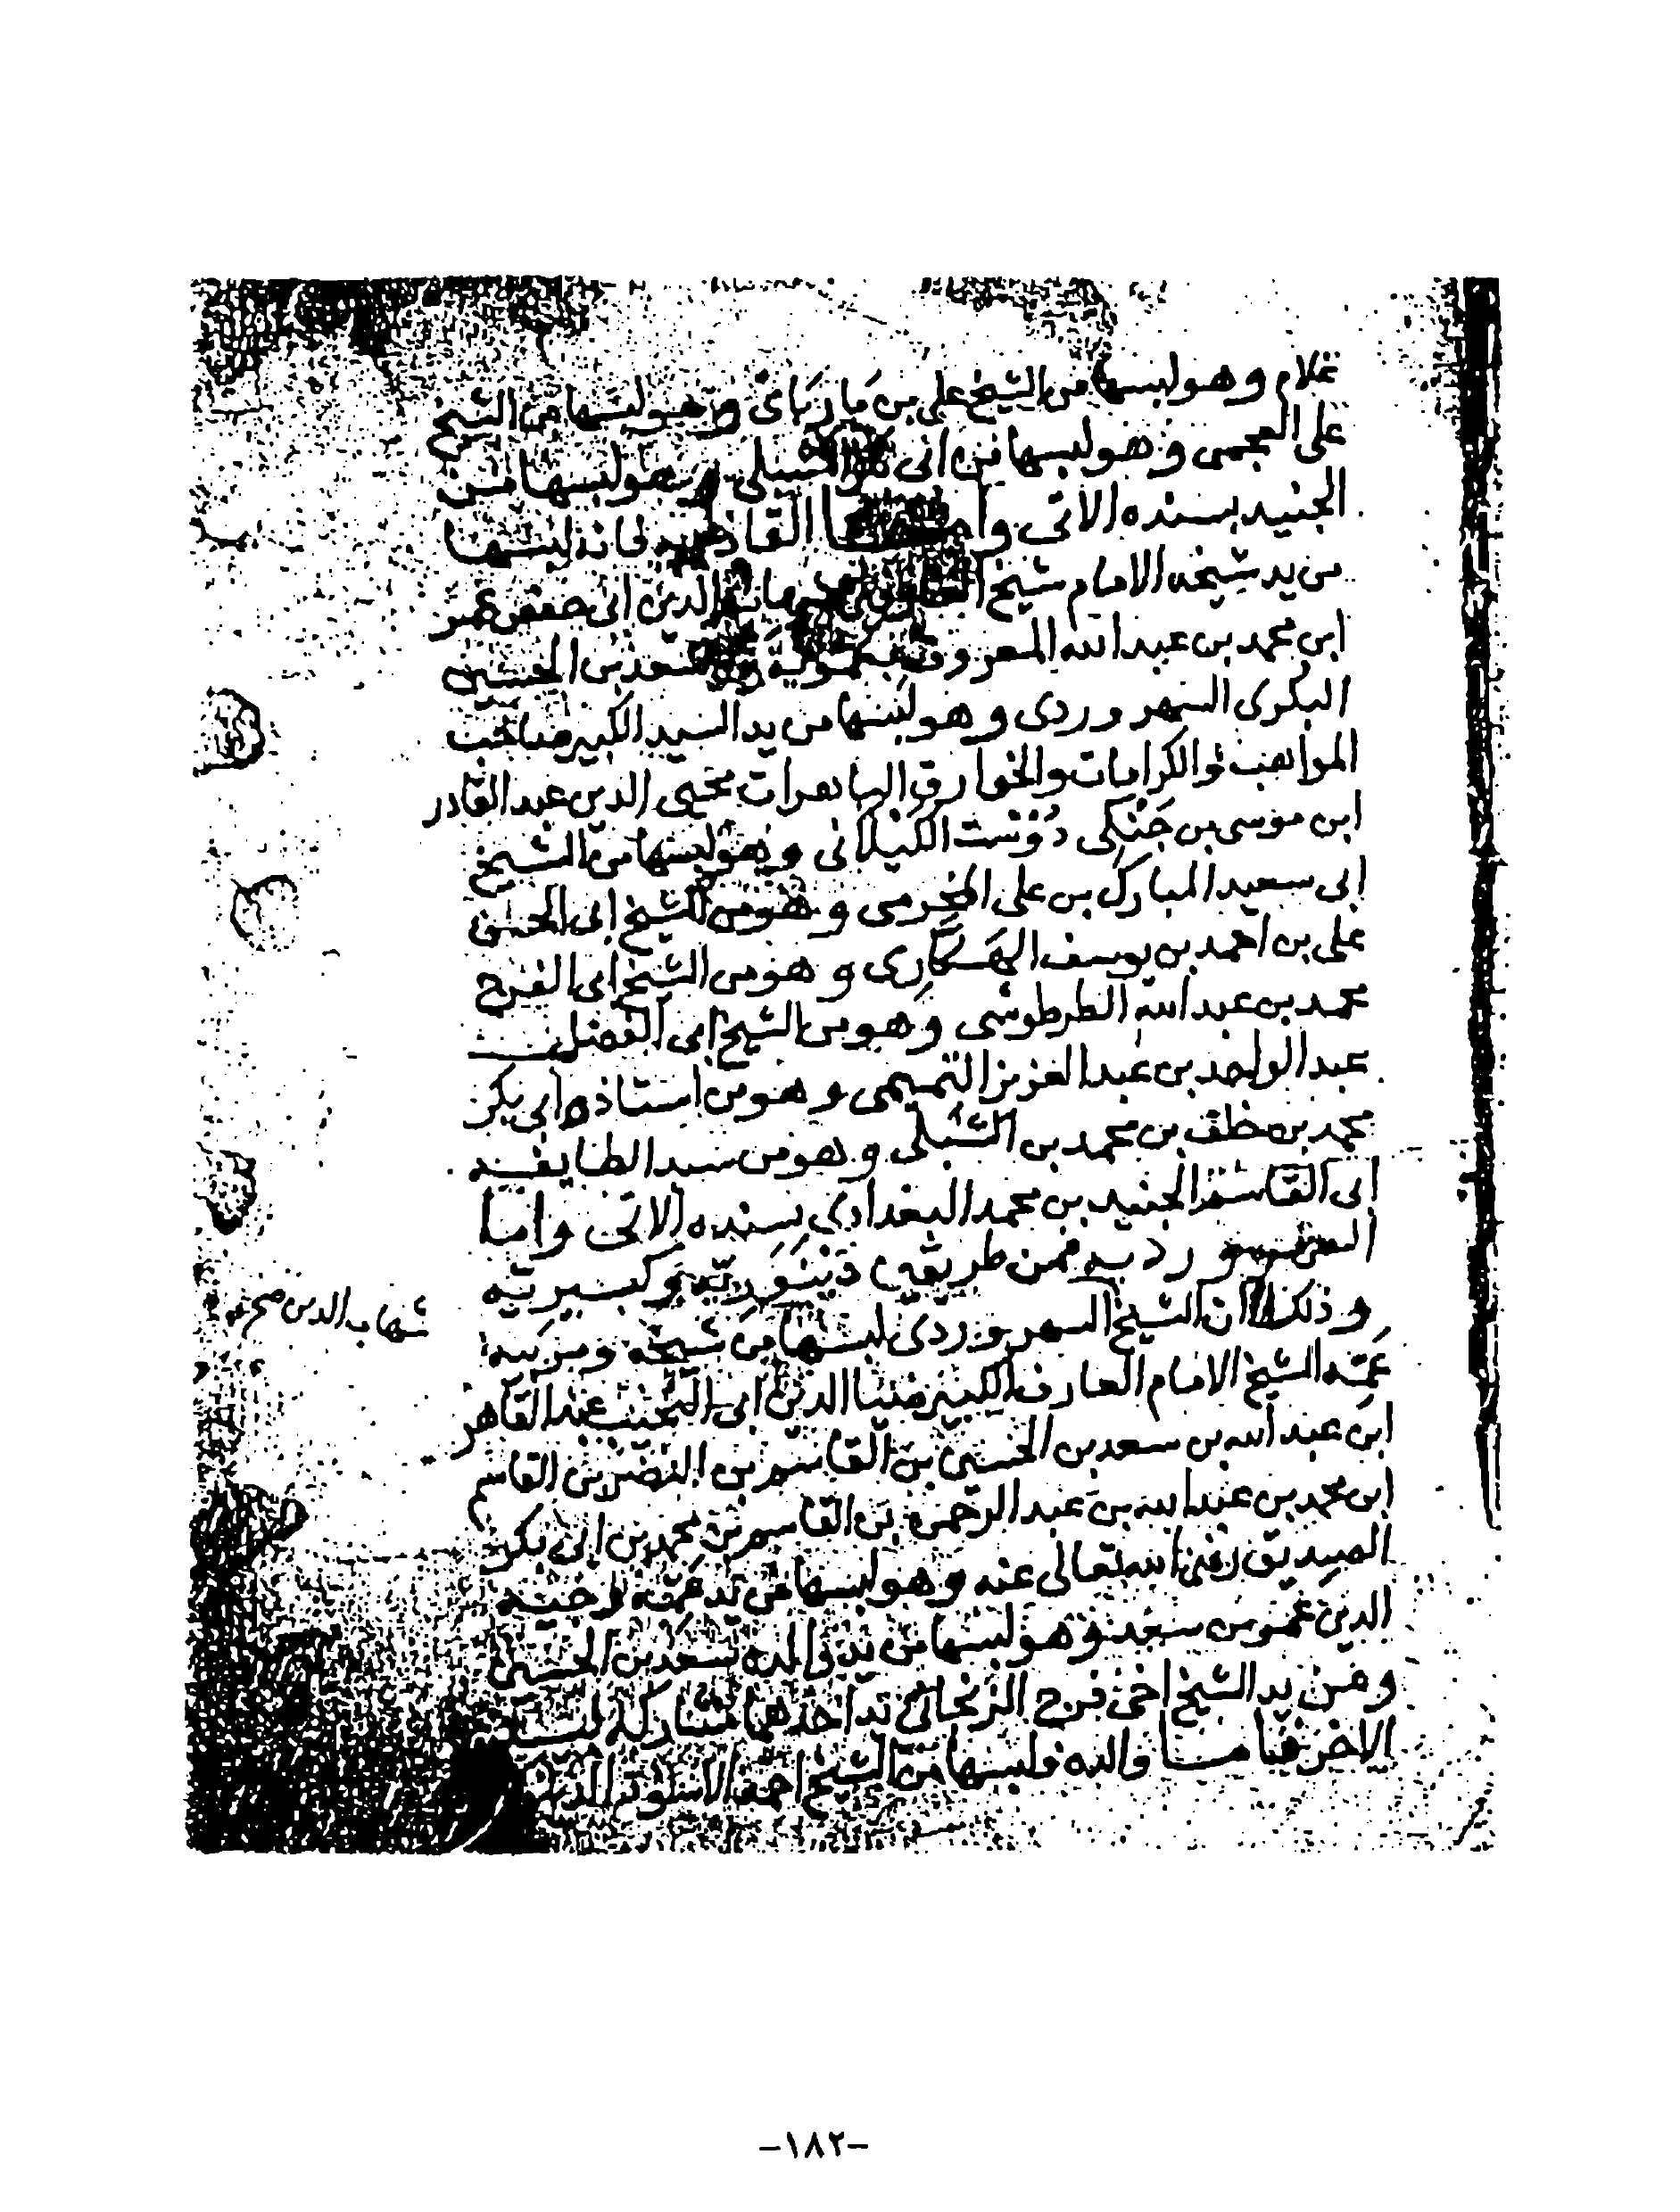 غلام وهو لبسها من الشيخ علي بن باريباي وهو لبسها من الشيخ
على العجمى وهو لبسها من ابى الجيلى وهو لبسها من
الجنيد بسنده الاتى وا القادرية فانه لبسها
من يد شيخه الامام شيخ الدين ابى حفص عمر
ابن محمد بن عبد الله المعروف بعموية بن سعد بن الحسين
البكرى السهروردى وهو لبسها من يد السيد الكبير صاحب
المواهب والكرامات والخوارق الباهرات محيى الدين عبد القادر
ابن موسى بن جنكى دوست الكيلانى وهو لبسها من الشيخ
ابى سعيد المبارك بن على المخرمى وهو من الشيخ ابى الحسن
على بن احمد بن يوسف الهكارى وهو من الشيخ ابى الفرج
محمد بن عبد الله الطرطوشى وهو من الشيخ ابى الفضل
عبد الواحد بن عبد العزيز التميمى وهو من استاذه ابى بكر
محمد بن خلف بن محمد بن الشبلى وهو من سيد الطايفه
ابى القاسم الجنيد بن محمد البغدادى بسنده الاتى واما
السهرورديه فمن طريقين دينورية وكبيريه
وذلك ان الشيخ السهروردى لبسها من شيخه ومربيه
شهاب الدين صح
عمه الشيخ الامام العارف الكبير ضيا الدين ابى النجيب عبد القاهر
ابن عبد الله بن سعد بن الحسين بن القاسم بن النضر بن القاسم
ابن محمد بن عبد الله بن عبد الرحمن بن القاسم بن محمد بن ابى بكر
الصديق رضى الله تعالى عنه وهو لبسها من يد عمه وجيه
الدين عمر بن سعد وهو لبسها من يد والده سعد بن الحسين
ومن يد الشيخ اخى فرج الزنجانى
الاخر فاما والده فلبسها من الشيخ احمد الاسود
-١٨٢-